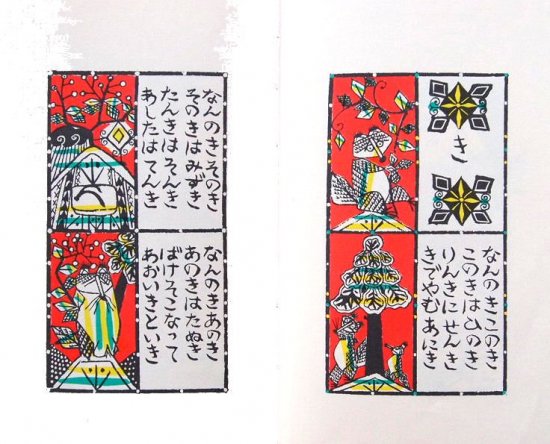 き
なんのきこのき
このきはひのき
りんきにせんき
きでやむあにき
なんのきそのき
そのきはみずき
たんきはそんき
あしたはてんき
なんのきあのき
あのきはたぬき
ばけそこなって
あおいきといき